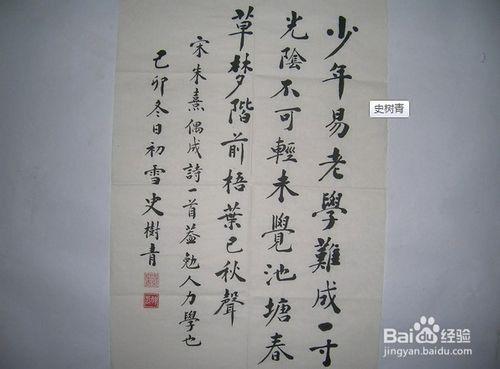 少年易老學難成一寸
光陰不可輕未覺池塘春
草梦階前梧葉已秋聲
宋朱熹偶成詩一首蓋勉人力學也
己卯冬日初雪史樹青
史树青
Bai度经验
jingyan.baidu.com